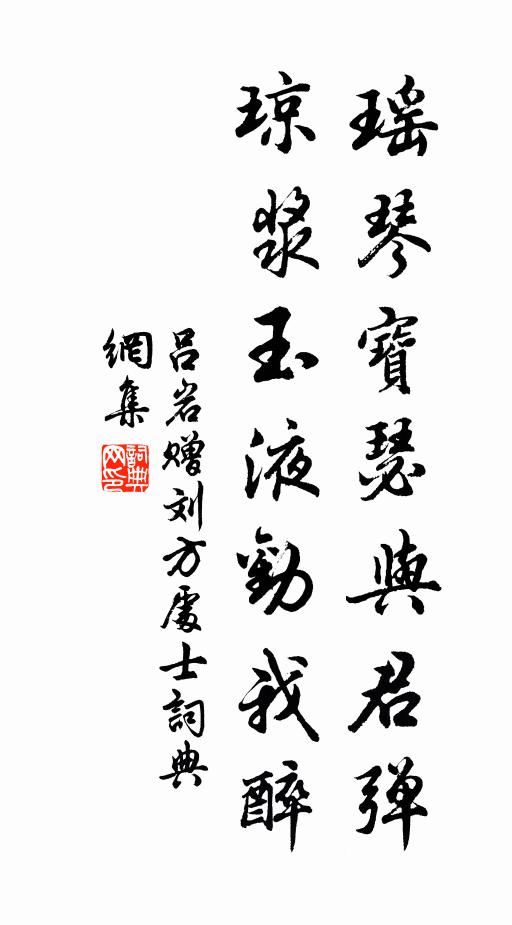 瑶琴寶瑟與君弹
琼浆玉液勸我醉
吕岩赠刘方處士詞典
網集
詞典网印